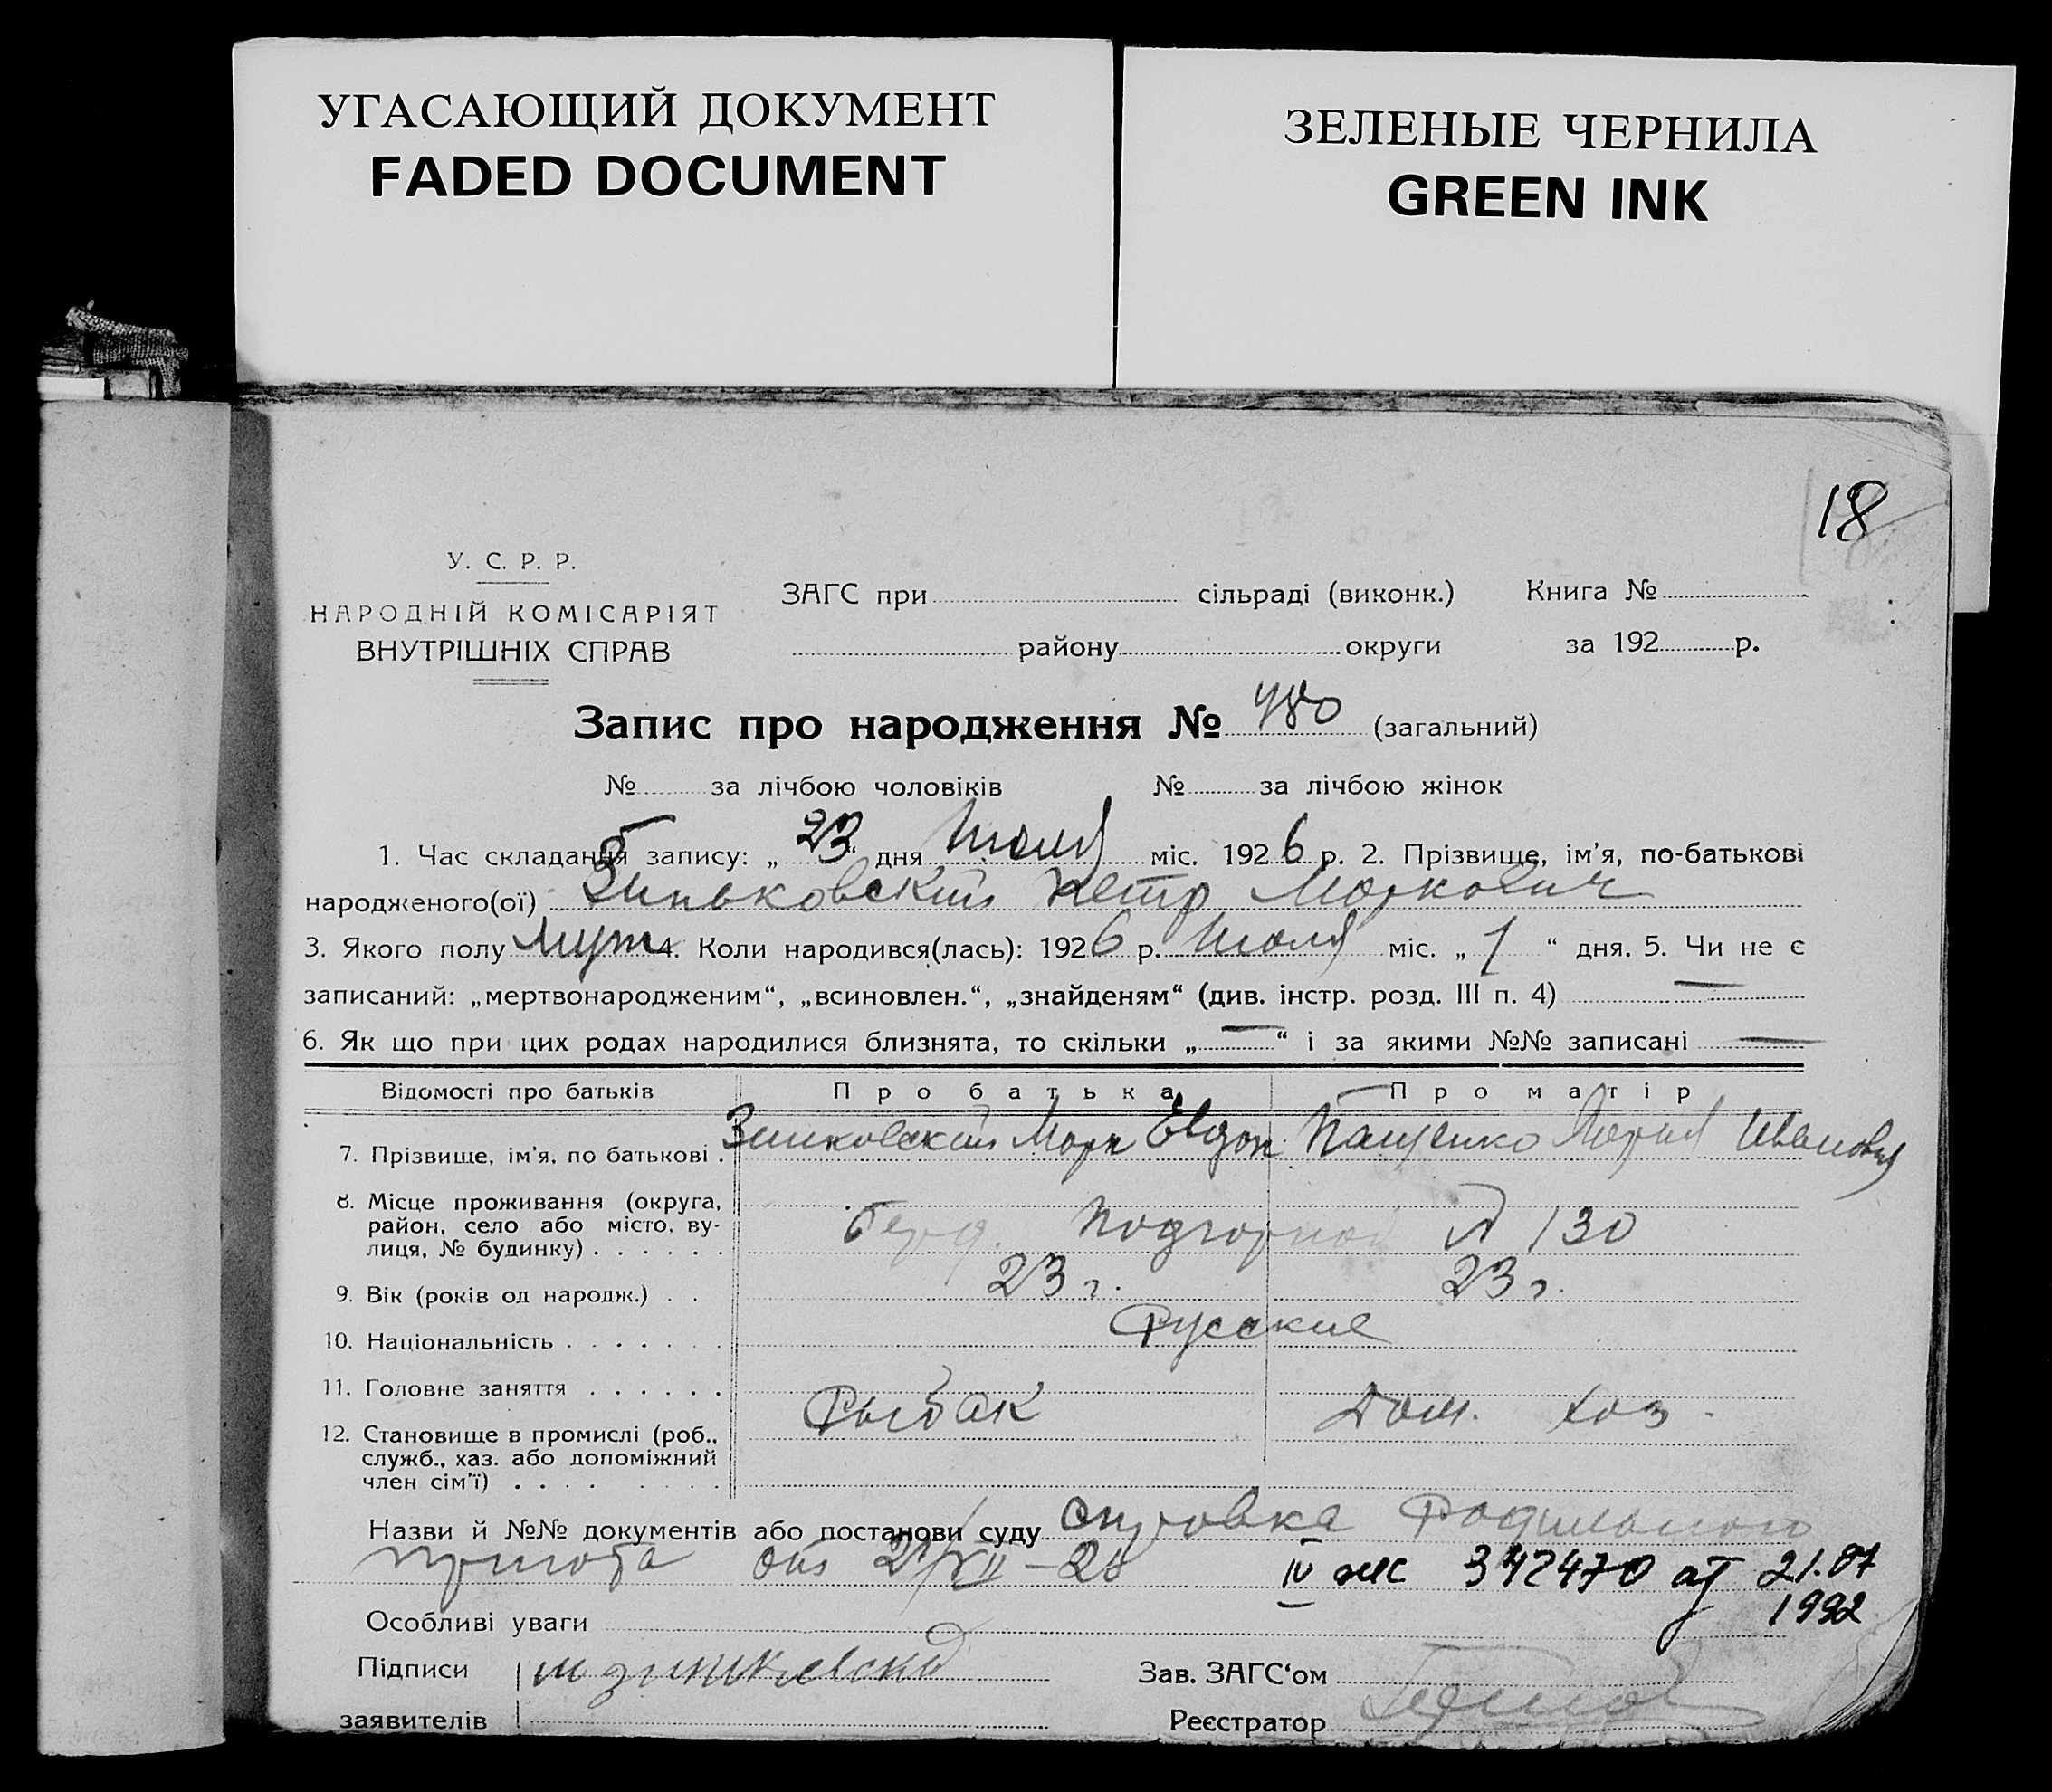 УГАСАЮЩИЙ ДОКУМЕНТ
FADED DOCUMENT
ЗЕЛЕНЫЕ ЧЕРНИЛА
GREEN INK
18
У. С. Р. Р.
НАРОДНІЙ КОМІСАРІЯТ
ВНУТРІШНІХ СПРАВ
ЗАГС при сільраді (виконк.) Книга №
району округи за 192 р.
Запис про народження № 480 (загальний)
№ за лічбою чоловіків № за лічбою жінок
1. Час складання запису: „ 23 “ дня Июля міс. 1926 р. 2. Прізвище, ім'я, по-батькові
народженого(ої) Зиньковский Петр Маркович
3. Якого полу Муж 4. Коли народився(лась): 1926 р. Июля міс. „ 1 “ дня. 5. Чи не є
записаний: „мертвонародженим“, „всиновлен.“, „знайденям“ (див. інстр. розд. III п. 4) —
6. Як що при цих родах народилися близнята, то скільки „ — “ і за якими №№ записані —
Відомості про батьків Про батька Про матір
7. Прізвище, ім'я, по батькові . Зинковский Марк Евдок. Пащенко Мария Ивановна
8. Місце проживання (округа,
район, село або місто, ву-
лиця, № будинку) . . . . . . Берд. Подгорной № 130
9. Вік (років од народж.) . . 23 г. 23 г.
10. Національність . . . . . . . Русские
11. Головне заняття . . . . . . Рыбак Дом. хоз.
12. Становище в промислі (роб.,
служб., хаз. або допоміжний
член сім'ї) . . . . . . . .
Назви й №№ документів або постанови суду Справка Родильного
приюта от 21/VII – 26 IV жс 342470 от 21.07
1992
Особливі уваги
Підписи М Зинковский Зав. ЗАГС‘ом
заявителів Реєстратор